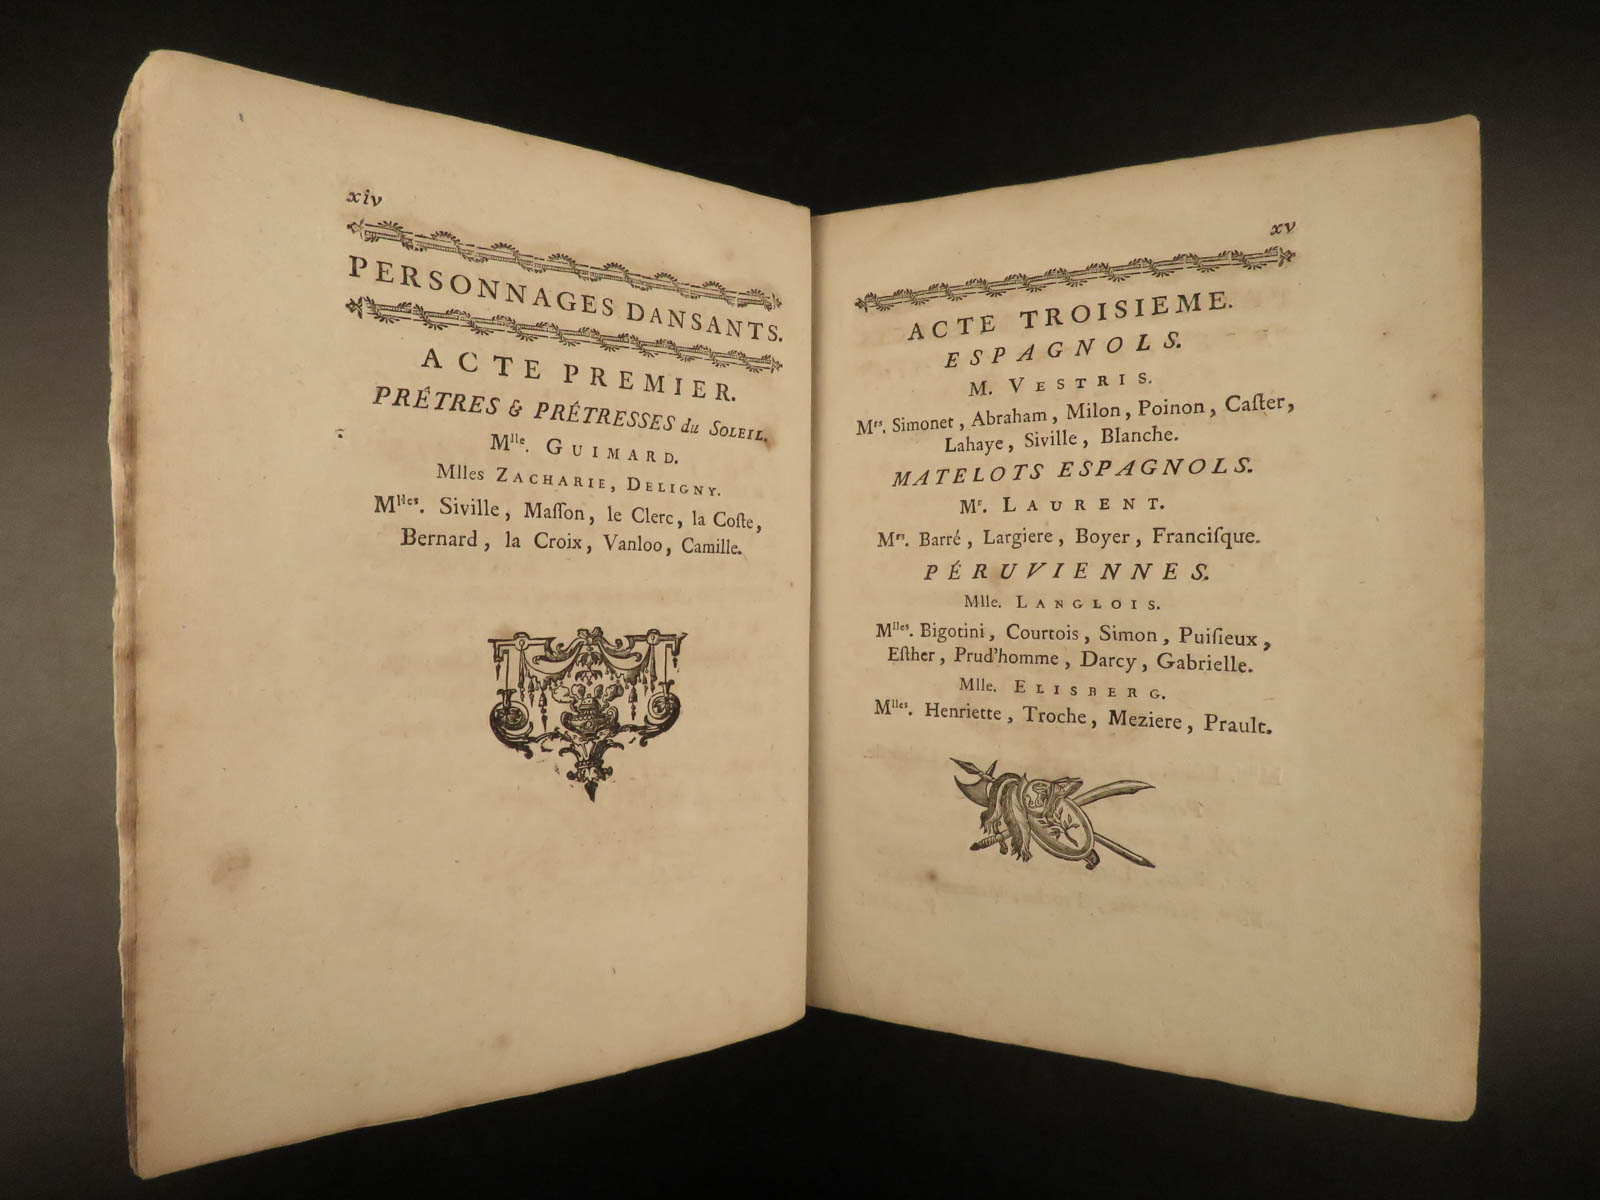 xiv
PERSONNAGES DANSANTS.
ACTE PREMIER.
PRÊTRES & PRÊTRESSES du SOLEIL.
Mlle. GUIMARD.
Mlles ZACHARIE, DELIGNY.
Mlles. Siville, Maſſon, le Clerc, la Coſte,
Bernard, la Croix, Vanloo, Camille.
xv
ACTE TROISIEME.
ESPAGNOLS.
M. VESTRIS.
Mrs. Simonet, Abraham, Milon, Poinon, Caſter,
Lahaye, Siville, Blanche.
MATELOTS ESPAGNOLS.
Mr. LAURENT.
Mrs. Barré, Largiere, Boyer, Franciſque.
PÉRUVIENNES.
Mlle. LANGLOIS.
Mlles. Bigotini, Courtois, Simon, Puiſieux,
Eſther, Prud'homme, Darcy, Gabrielle.
Mlle. ELISBERG.
Mlles. Henriette, Troche, Meziere, Prault.